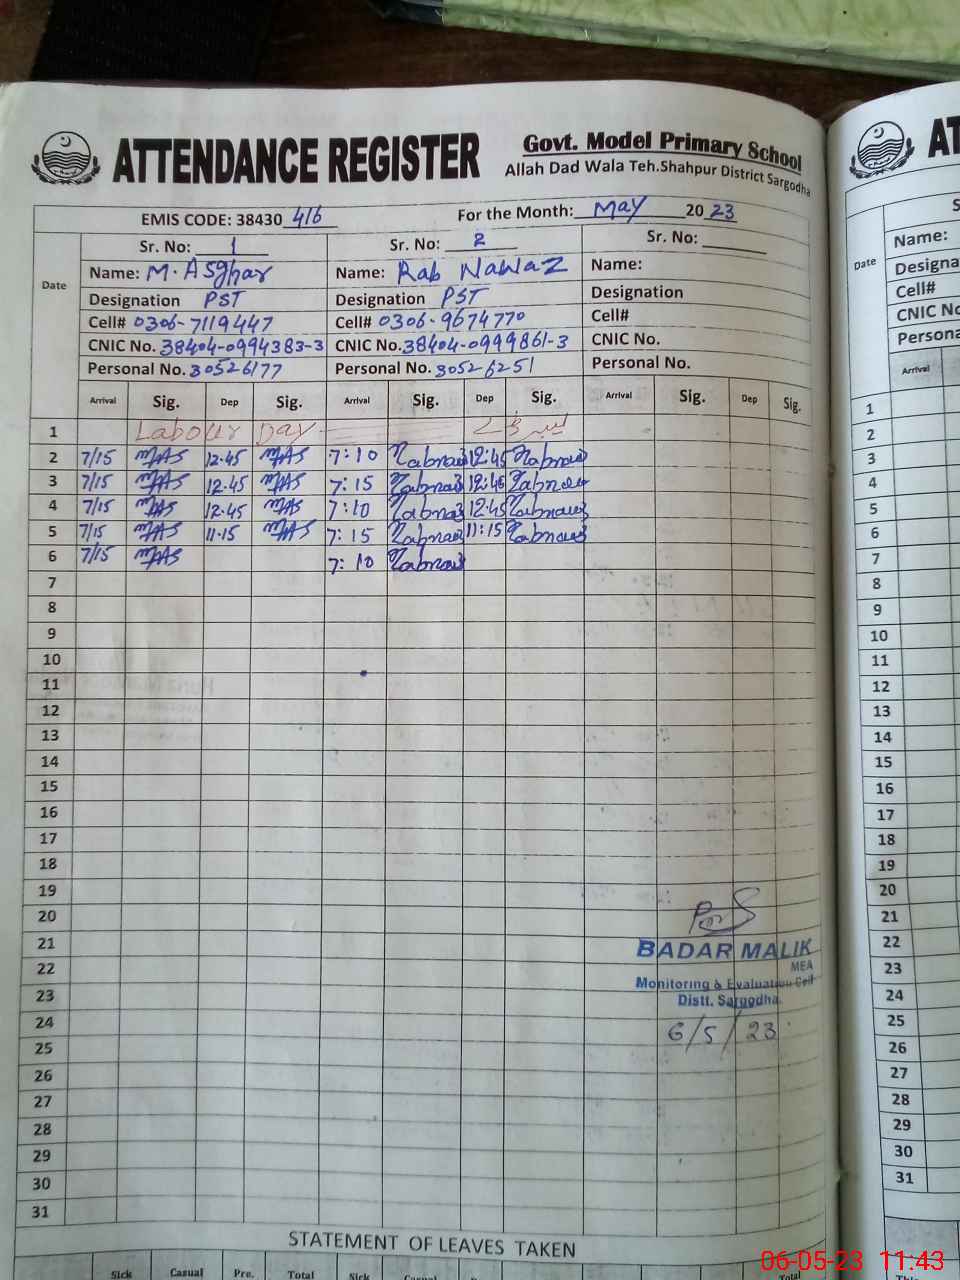 ATTENDANCE REGISTER
Govt. Model Primary School
Allah Dad Wala Teh.Shahpur District Sargodha
EMIS CODE: 38430 416 For the Month: May 20 23
Date
Sr. No: 1 Sr. No: 2 Sr. No:
Name: M. Asghar Name: Rab Nawaz Name:
Designation PST Designation PST Designation
Cell# 0306-7119447 Cell# 0306-9674770 Cell#
CNIC No. 38404-0994383-3 CNIC No. 38404-0999861-3 CNIC No.
Personal No. 30526177 Personal No. 30526251 Personal No.
Arrival Sig. Dep Sig. Arrival Sig. Dep Sig. Arrival Sig. Dep Sig.
1 Labour Day
2 7/15 MAS 12.45 MAS 7:10 Rabnawaz 12:45 Rabnawaz
3 7/15 MAS 12.45 MAS 7:15 Rabnawaz 12:45 Rabnawaz
4 7/15 MAS 12.45 MAS 7:10 Rabnawaz 12.45 Rabnawaz
5 7/15 MAS 11.15 MAS 7:15 Rabnawaz 11:15 Rabnawaz
6 7/15 MAS 7:10 Rabnawaz
7
8
9
10
11
12
13
14
15
16
17
18
19
20
21
22
23
24
25
26
27
28
29
30
31
BADAR MALIK
MEA
Monitoring & Evaluation Cell
Distt. Sargodha.
6/5/23
STATEMENT OF LEAVES TAKEN
Sick Casual Pre. Total Sick Casual Pre. Total Total
AT
Date
Name:
Designa
Cell#
CNIC N
Persona
Arrival
1
2
3
4
5
6
7
8
9
10
11
12
13
14
15
16
17
18
19
20
21
22
23
24
25
26
27
28
29
30
31
06-05-23 11:43